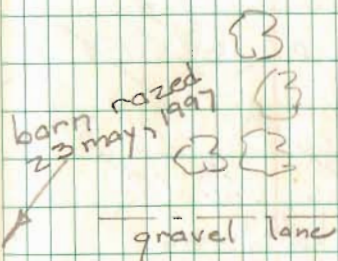 barn razed
23 may, 1997
gravel lane